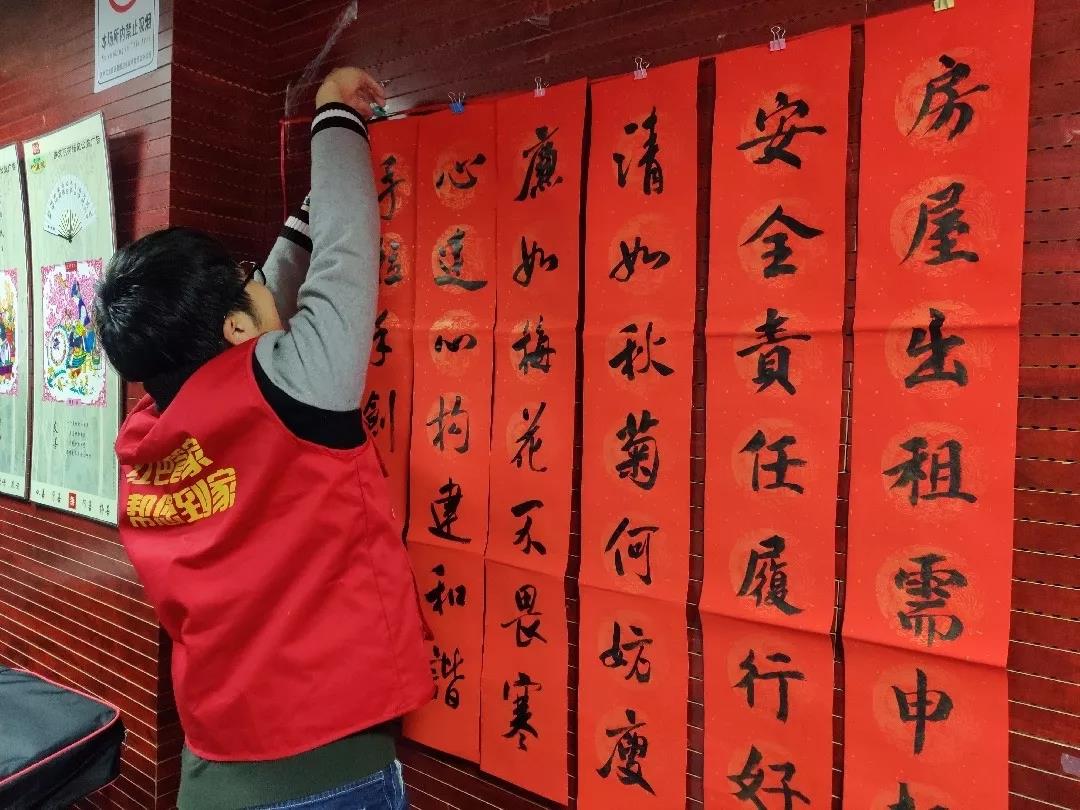 本场所内禁止吸烟
房屋出租需申
安全責任履行好
清如秋菊何妨瘦
廉如梅花不畏寒
心連心构建和諧
手手創
帮您到家